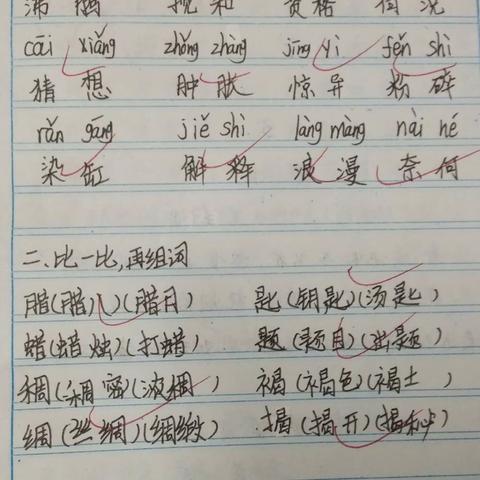 搅 和 资 格 何 况
cāi xiǎng zhǒng zhàng jīng yì fěn shì
猜 想 肿 胀 惊 异 粉 碎
rǎn gāng jiě shì làng màng nài hé
染 缸 解 释 浪 漫 奈 何
二、比一比,再组词
腊(腊八)(腊月) 匙(钥匙)(汤匙)
蜡(蜡烛)(打蜡) 题(题目)(出题)
稠(稠密)(浓稠) 褐(褐色)(褐土)
绸(丝绸)(绸缎) 揭(揭开)(揭秘)